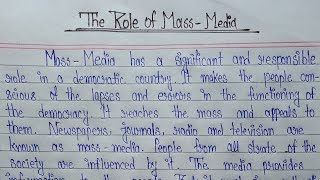 The Role of Mass-Media
Mass-Media has a significant and responsible
role in a democratic country. It makes the people con-
scious of the lapses and errors in the functioning of
the democracy. It reaches the mass and appeals to
them. Newspapers, journals, radio and television are
known as mass-media. People from all strate of the
society are influenced by it. The media provides
information to